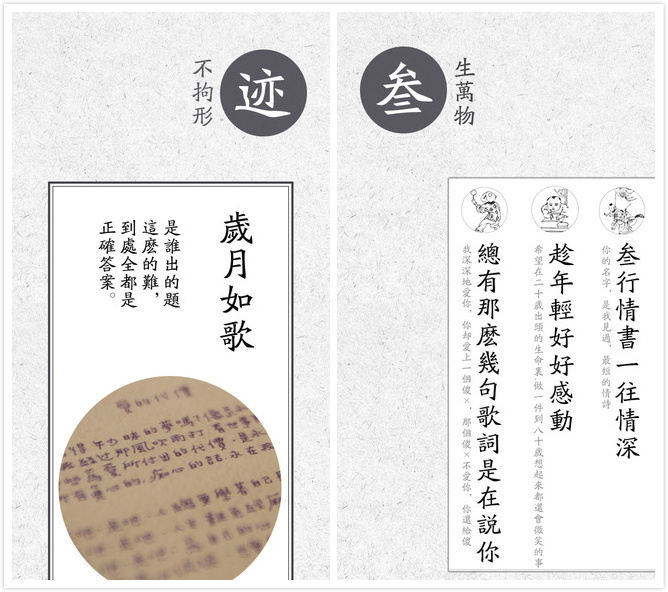 迹
不拘形
歲月如歌
是誰出的題
這麽的難，
到處全都是
正確答案。
愛的代價
為愛所付出的代價，是永
叁
生萬物
叁行情書一往情深
你的名字，是我見過，最短的情詩
趁年輕好好感動
希望在二十歲出頭的生命裏,做一件到八十歲想起來都還會微笑的事
總有那麽幾句歌詞是在説你
我深深地愛你，你却愛上一個傻×，那個傻×不愛你，你還給傻